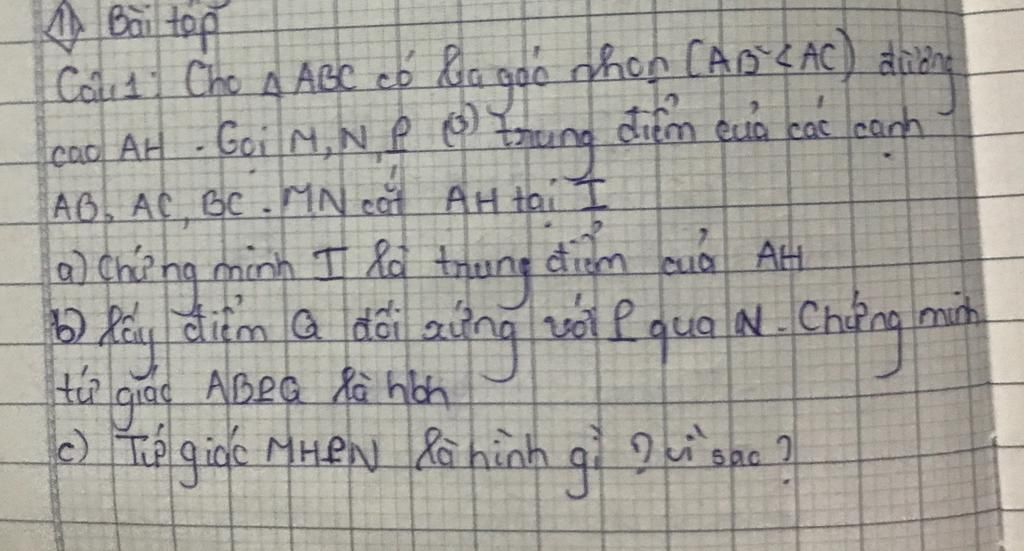 ① Bài tập
Câu 1: Cho Δ ABC có ba góc nhọn (AB < AC) đường
cao AH. Gọi M, N, P (3) trung điểm của các cạnh
AB, AC, BC. MN cắt AH tại I
a) Chứng minh I là trung điểm của AH
b) Lấy điểm Q đối xứng với P qua N. Chứng minh
tứ giác ABPQ là hbh
c) Tứ giác MHPN là hình gì? Vì sao?